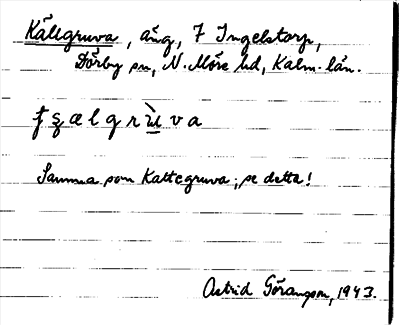 Källgruva, äng, 7 Ingelstorp,
Dörby sn, N. Möre hd, Kalm. län.
ƫʂælgrùva
Samma som Kattegruva; se detta!
Astrid Göransson, 1943.